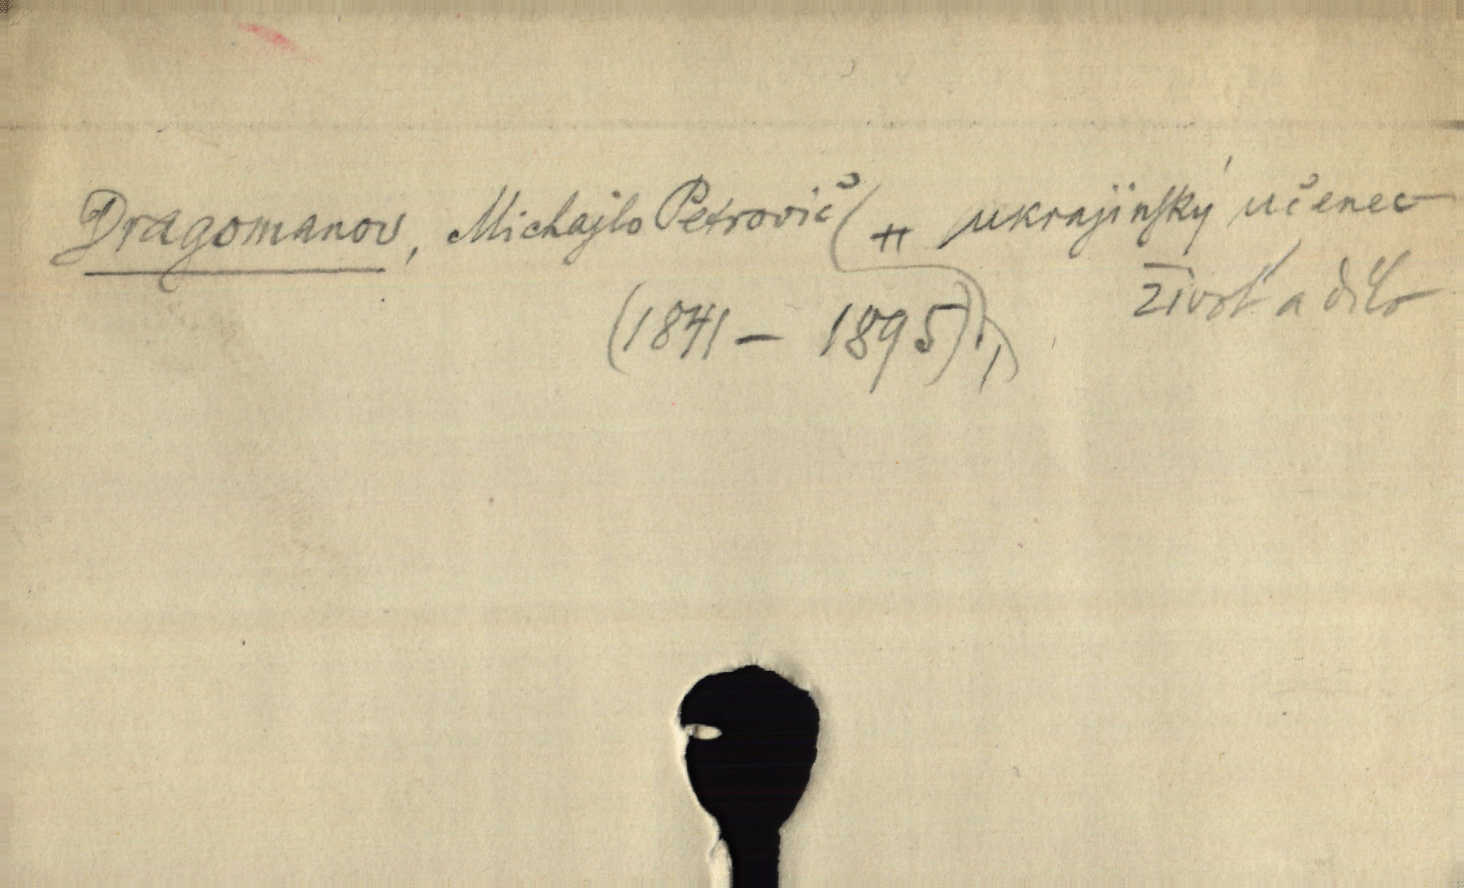 Dragomanov, Michajlo Petrovič ( ++ ukrajinský učenec
život a dílo
(1841 – 1895).,)